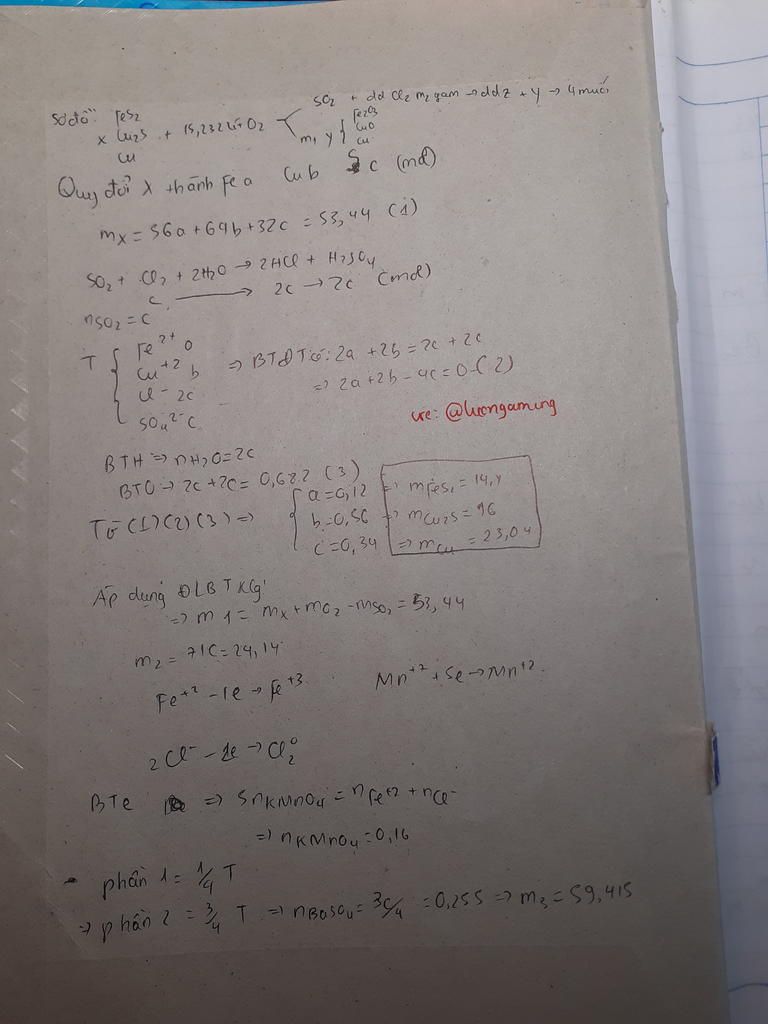 Sơ đồ: FeS2 SO2 + dd Cl2 m2 gam → ddZ + Y → 4 muối
X Cu2S + 15,232 lít O2 Fe2O3
Cu m1 Y CuO
Cu
Quy đổi X thành Fe a Cu b S c (mol)
mX = 56a + 64b + 32c = 53,44 (1)
SO2 + Cl2 + 2H2O → 2HCl + H2SO4
c → 2c → 2c (mol)
nSO2 = c
T { Fe2+ a
Cu+2 b ⇒ BTĐT có: 2a + 2b = 2c + 2c
Cl- 2c ⇒ 2a + 2b - 4c = 0 (2)
SO42- c
cre: @luongaming
BTH ⇒ nH2O = 2c
BTO → 2c + 2c = 0,682 (3)
Từ (1) (2) (3) ⇒ { a = 0,12 ⇒ mFeS2 = 14,4
b = 0,56 ⇒ mCu2S = 16
c = 0,34 ⇒ mCu = 23,04
Áp dụng ĐLBTKL
⇒ m1 = mX + mO2 - mSO2 = 53,44
m2 = 71c = 24,14
Fe+2 - 1e → Fe+3 Mn+2 + 5e → Mn+2.
2Cl- - 2e → Cl20
BTe ⇒ 5nKMnO4 = nFe+2 + nCl-
⇒ nKMnO4 = 0,16
- phần 1 = 1/4 T
⇒ phần 2 = 3/4 T ⇒ nBaSO4 = 3c/4 = 0,255 ⇒ m3 = 59,415